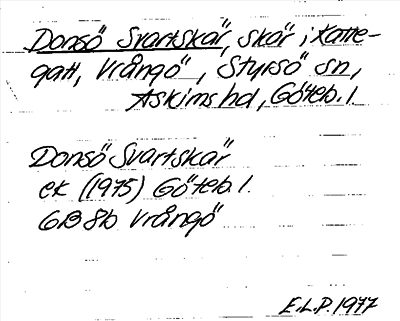 Donsö Svartskär, skär i Katte-
gatt, Vrångö, Styrsö sn,
Askims hd, Göteb. l.
Donsö Svartskär
ek (1975) Göteb. l.
6B 8b Vrångö
E.L.P. 1977